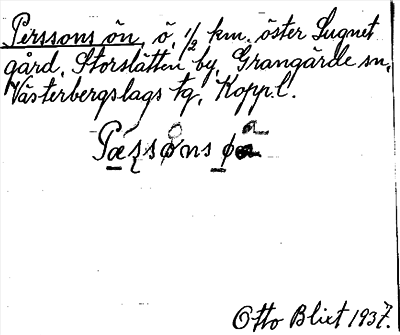 Perssons ön, ö, 1/2 km. öster Sugnet
gård, Storslätten by, Grangärde sn,
Västerbergslags tg, Kopp.l.
Otto Blixt 1937.